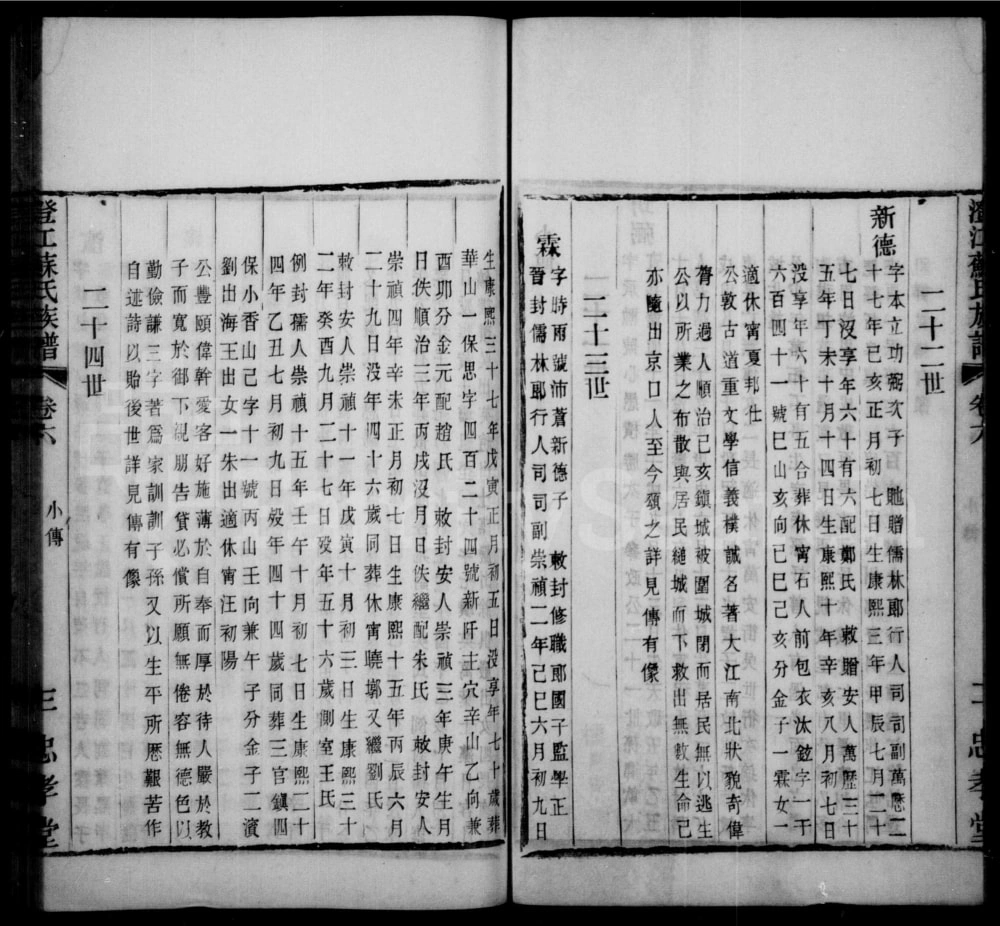 二十二世
新德
字本立功弼次子　貤贈儒林郎行人司司副萬歷二
十七年己亥正月初七日生康熙三年甲辰七月二十
七日沒享年六十有六配鄭氏　敕贈安人萬歷三十
五年丁未十月十四日生康熙十年辛亥八月初七日
沒享年六十有五合葬休寧石人前包衣汰鉉字一千
六百四十一號巳山亥向己巳己亥分金子一霖女一
適休寧夏邦仕
公敦古道重文學信義樸誠名著大江南北狀貌奇偉
膂力過人順治己亥鎮城被圍城閉而居民無以逃生
公以所業之布散與居民縋城而下救出無數生命己
亦隨出京口人至今頌之詳見傳有像
二十三世
霖
字時雨號沛蒼新德子　敕封修職郎國子監學正
晉封儒林郎行人司司副崇禎二年己巳六月初九日
生康熙三十七年戊寅正月初五日沒享年七十歲葬
華山一保思字四百二十四號新阡土穴辛山乙向兼
酉卯分金元配趙氏　敕封安人崇禎三年庚午生月
日佚順治三年丙戌沒月日佚繼配朱氏　敕封安人
崇禎四年辛未正月初七日生康熙十五年丙辰六月
二十九日沒年四十六歲同葬休寧曉墎又繼劉氏
敕封安人崇禎十一年戊寅十月初三日生康熙三十
二年癸酉九月二十七日歿年五十六歲側室王氏
例封孺人崇禎十五年壬午十月初七日生康熙二十
四年乙丑七月初九日歿年四十四歲同葬三官鎮四
保小香山己字十一號丙山壬向兼午子分金子二濱
劉出海王出女一朱出適休寧汪初陽
公豐頤偉幹愛客好施薄於自奉而厚於待人嚴於教
子而寬於御下親朋告貸必償所願無倦容無德色以
勤儉謙三字著爲家訓訓子孫又以生平所歷艱苦作
自述詩以貽後世詳見傳有像
二十四世
澄江蘇氏族譜
卷六
小傳
三
忠孝堂